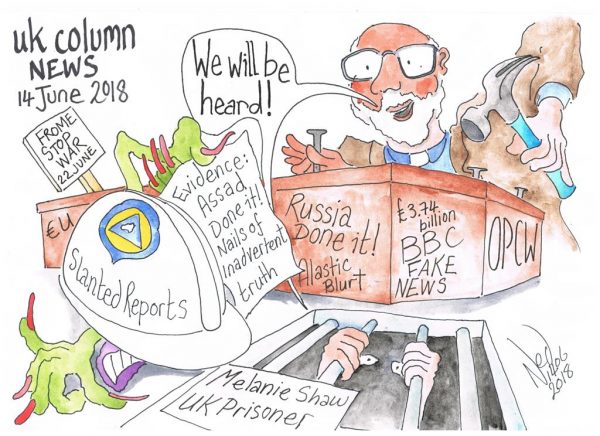 uk column
NEWS
14 June 2018
FROME
STOP
WAR
22 JUNE
We will be
heard!
Evidence:
Assad
Done it!
Nails of
inadvertent
truth
EU
Slanted Reports
Russia
Done it!
Alastic
Blurt
£3.74
billion
BBC
FAKE
NEWS
OPCW
Melanie Shaw
UK Prisoner
2018